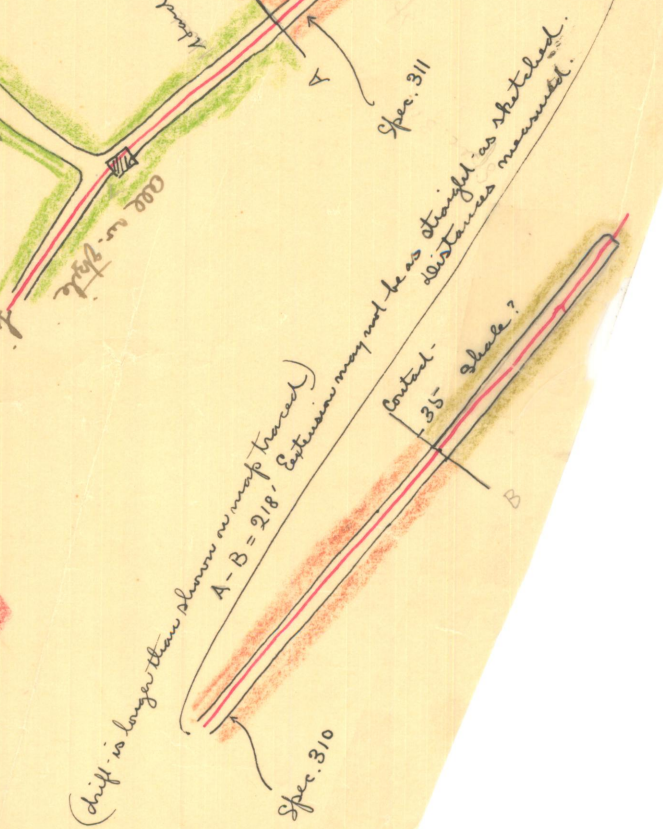 A
Spec. 311
all in
(drift is longer than shown on map traced)
A - B = 218' Extension may not be as straight as sketched.
Distances measured.
Contact -
35 Shale?
B
Spec. 310